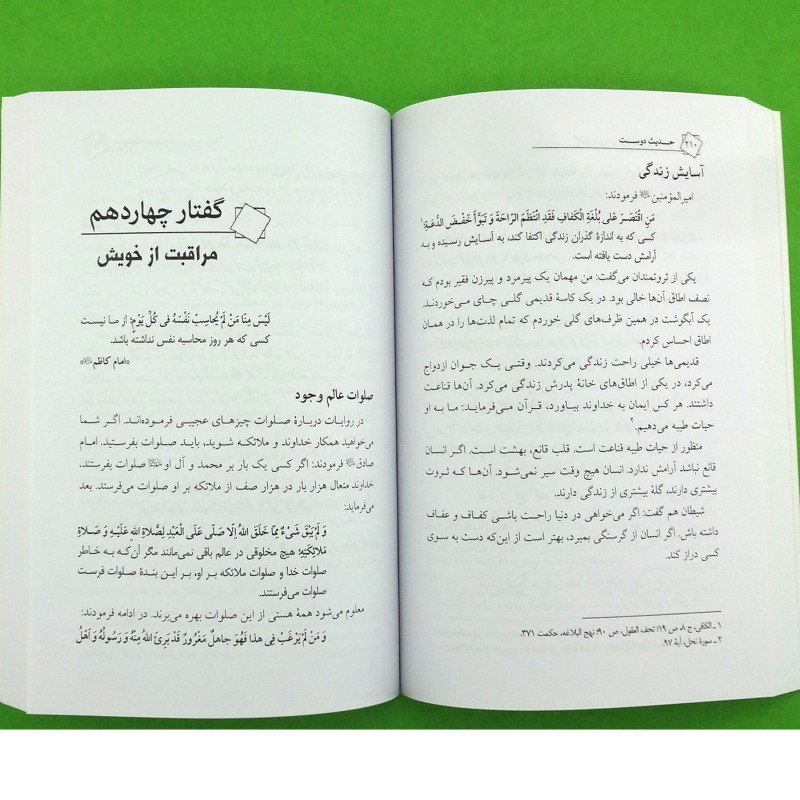 ۲۱۰
حـدیث دوسـت
آسایش زندگی
امیرالمؤمنین فرمودند:
مَنِ اقْتَصَرَ عَلی بُلْغَةِ الْكَفافِ فَقَدِ انْتَظَمَ الرّاحَةَ وَ تَبَوَّأَ خَفْضَ الدَّعَةِ؛۱
کسی که به اندازهٔ گذران زندگی اکتفا کند، به آسایش رسیده و به
آرامش دست یافته است.
یکی از ثروتمندان می‌گفت: من مهمان یک پیرمرد و پیرزن فقیر بودم که
نصف اطاق آن‌ها خالی بود. در یک کاسهٔ قدیمی گلی چای می‌خوردند.
یک آبگوشت در همین ظرف‌های گلی خوردم که تمام لذت‌ها را در همان
اطاق احساس کردم.
قدیمی‌ها خیلی راحت زندگی می‌کردند. وقتـی یـک جـوان ازدواج
می‌کرد، در یکی از اطاق‌های خانهٔ پدرش زندگی می‌کرد. آن‌ها قناعت
داشتند. هر کس ایمان به خداوند بیاورد، قـرآن مـی‌فرمایـد: مـا بـه او
حیات طیبه می‌دهیم.۲
منظور از حیات طیبه قناعت است. قلب قانع، بهشت است. اگـر انسـان
قانع نباشد آرامش ندارد. انسان هیچ وقت سیر نمی‌شود. آن‌هـا کـه ثـروت
بیشتری دارند، گلهٔ بیشتری از زندگی دارند.
شیطان هم گفت: اگر می‌خواهی در دنیا راحـت باشـی کفـاف و عفـاف
داشته باش. اگر انسان از گرسنگی بمیرد، بهتر است از این‌که دست به سـوی
کسی دراز کند.
۱ ـ الکافی، ج ۸، ص ۱۹؛ تحف العقول، ص ۹۰؛ نهج البلاغه، حکمت ۳۷۱.
۲ ـ سورهٔ نحل، آیهٔ ۹۷.
گفتار چهاردهم
مراقبت از خویش
لَیْسَ مِنّا مَنْ لَمْ یُحاسِبْ نَفْسَهُ فی کُلِّ یَوْمٍ؛ از مـا نیست
کسی که هر روز محاسبه نفس نداشته باشد.
امام کاظم
صلوات عالم وجود
در روایات دربارهٔ صـلوات چیزهای عجیبـی فرموده‌انـد. اگـر شـما
می‌خواهید همکار خداوند و ملائکـه شـوید، بایـد صلوات بفرستید. امـام
صادق فرمودند: اگر کسی یک بار بر محمد و آل او صلوات بفرستد،
خداوند متعال هزار بار در هزار صف از ملائکه بر او صلوات می‌فرستد. بعد
می‌فرماید:
وَ لَمْ یَبْقَ شَیْءٌ مِمّا خَلَقَ اللهُ اِلّا صَلّی عَلَی الْعَبْدِ لِصَلاةِ اللهِ عَلَیْـهِ وَ صَـلاةِ
مَلائِکَتِهِ؛ هیچ مخلوقی در عالم باقی نمی‌مانند مگر آن‌کـه بـه خاطر
صلوات خدا و صلوات ملائکـه بـر او، بـر ایـن بنـدهٔ صـلوات فرسـت
صلوات می‌فرستند.
معلوم می‌شود همهٔ هستی از این صلوات بهره می‌برند. در ادامه فرمودند:
وَ مَنْ لَمْ یَرْغَبْ فِی هذا فَهُوَ جاهِلٌ مَغْرُورٌ قَدْ بَرِئَ اللهُ مِنْهُ وَ رَسُولُهُ وَ اَهْلُ